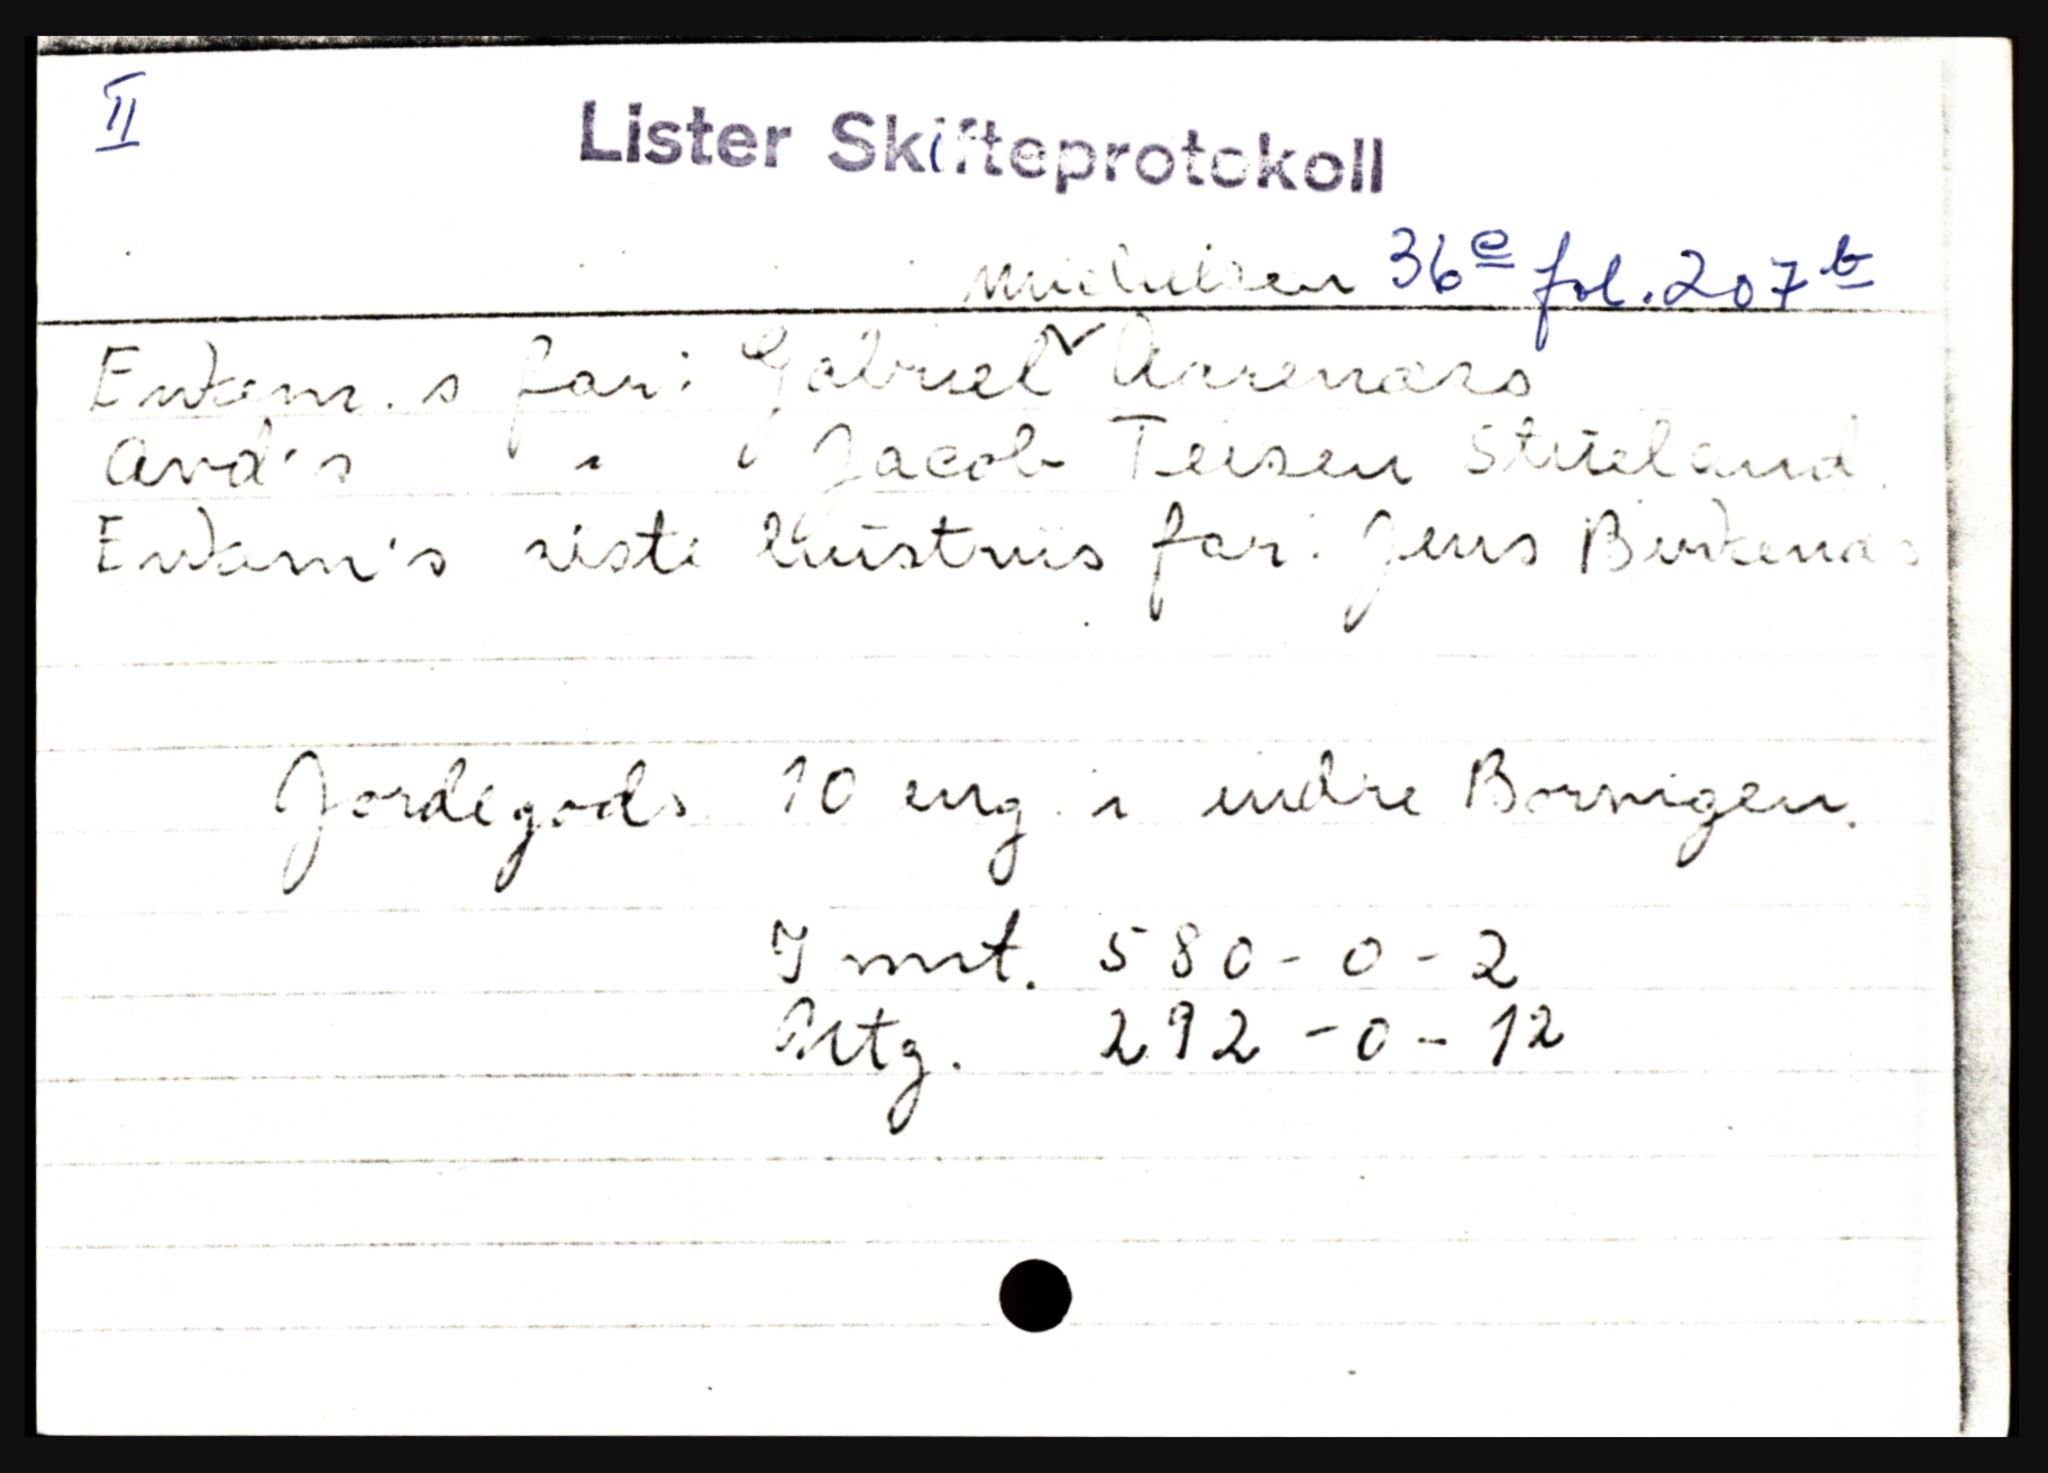 II
Lister Skifteprotokoll
Michelsen 36e fol. 207b
Enkem.s far: Gabriel Aarenæs
Avd's " Jacob Teisen Strieland
Enkem's siste hustrus far: Jens Birkenæs
Jordegods 10 eng. i indre Bornigen.
Imst. 580-0-2
Utg. 292-0-12